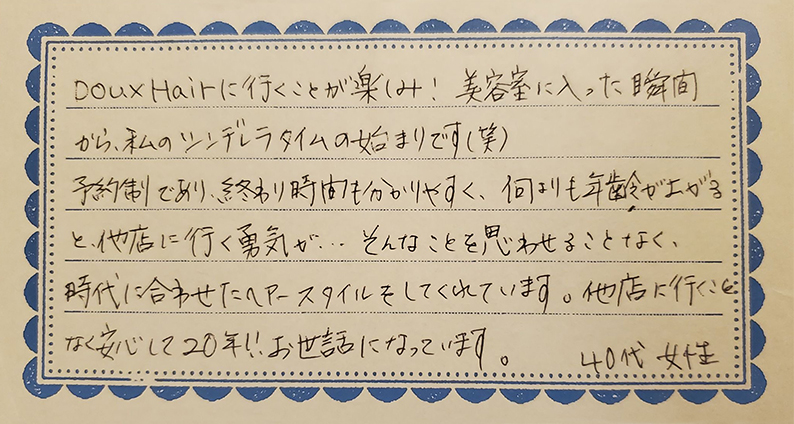 Doux Hairに行くことが楽しみ！美容室に入った瞬間
から、私のシンデレラタイムの始まりです(笑)
予約制であり、終わり時間も分かりやすく、何よりも年齢が上がる
と、他店に行く勇気が…そんなことを思わせることなく、
時代に合わせたヘアースタイルをしてくれています。他店に行くこと
なく安心して20年!!お世話になっています。
40代 女性